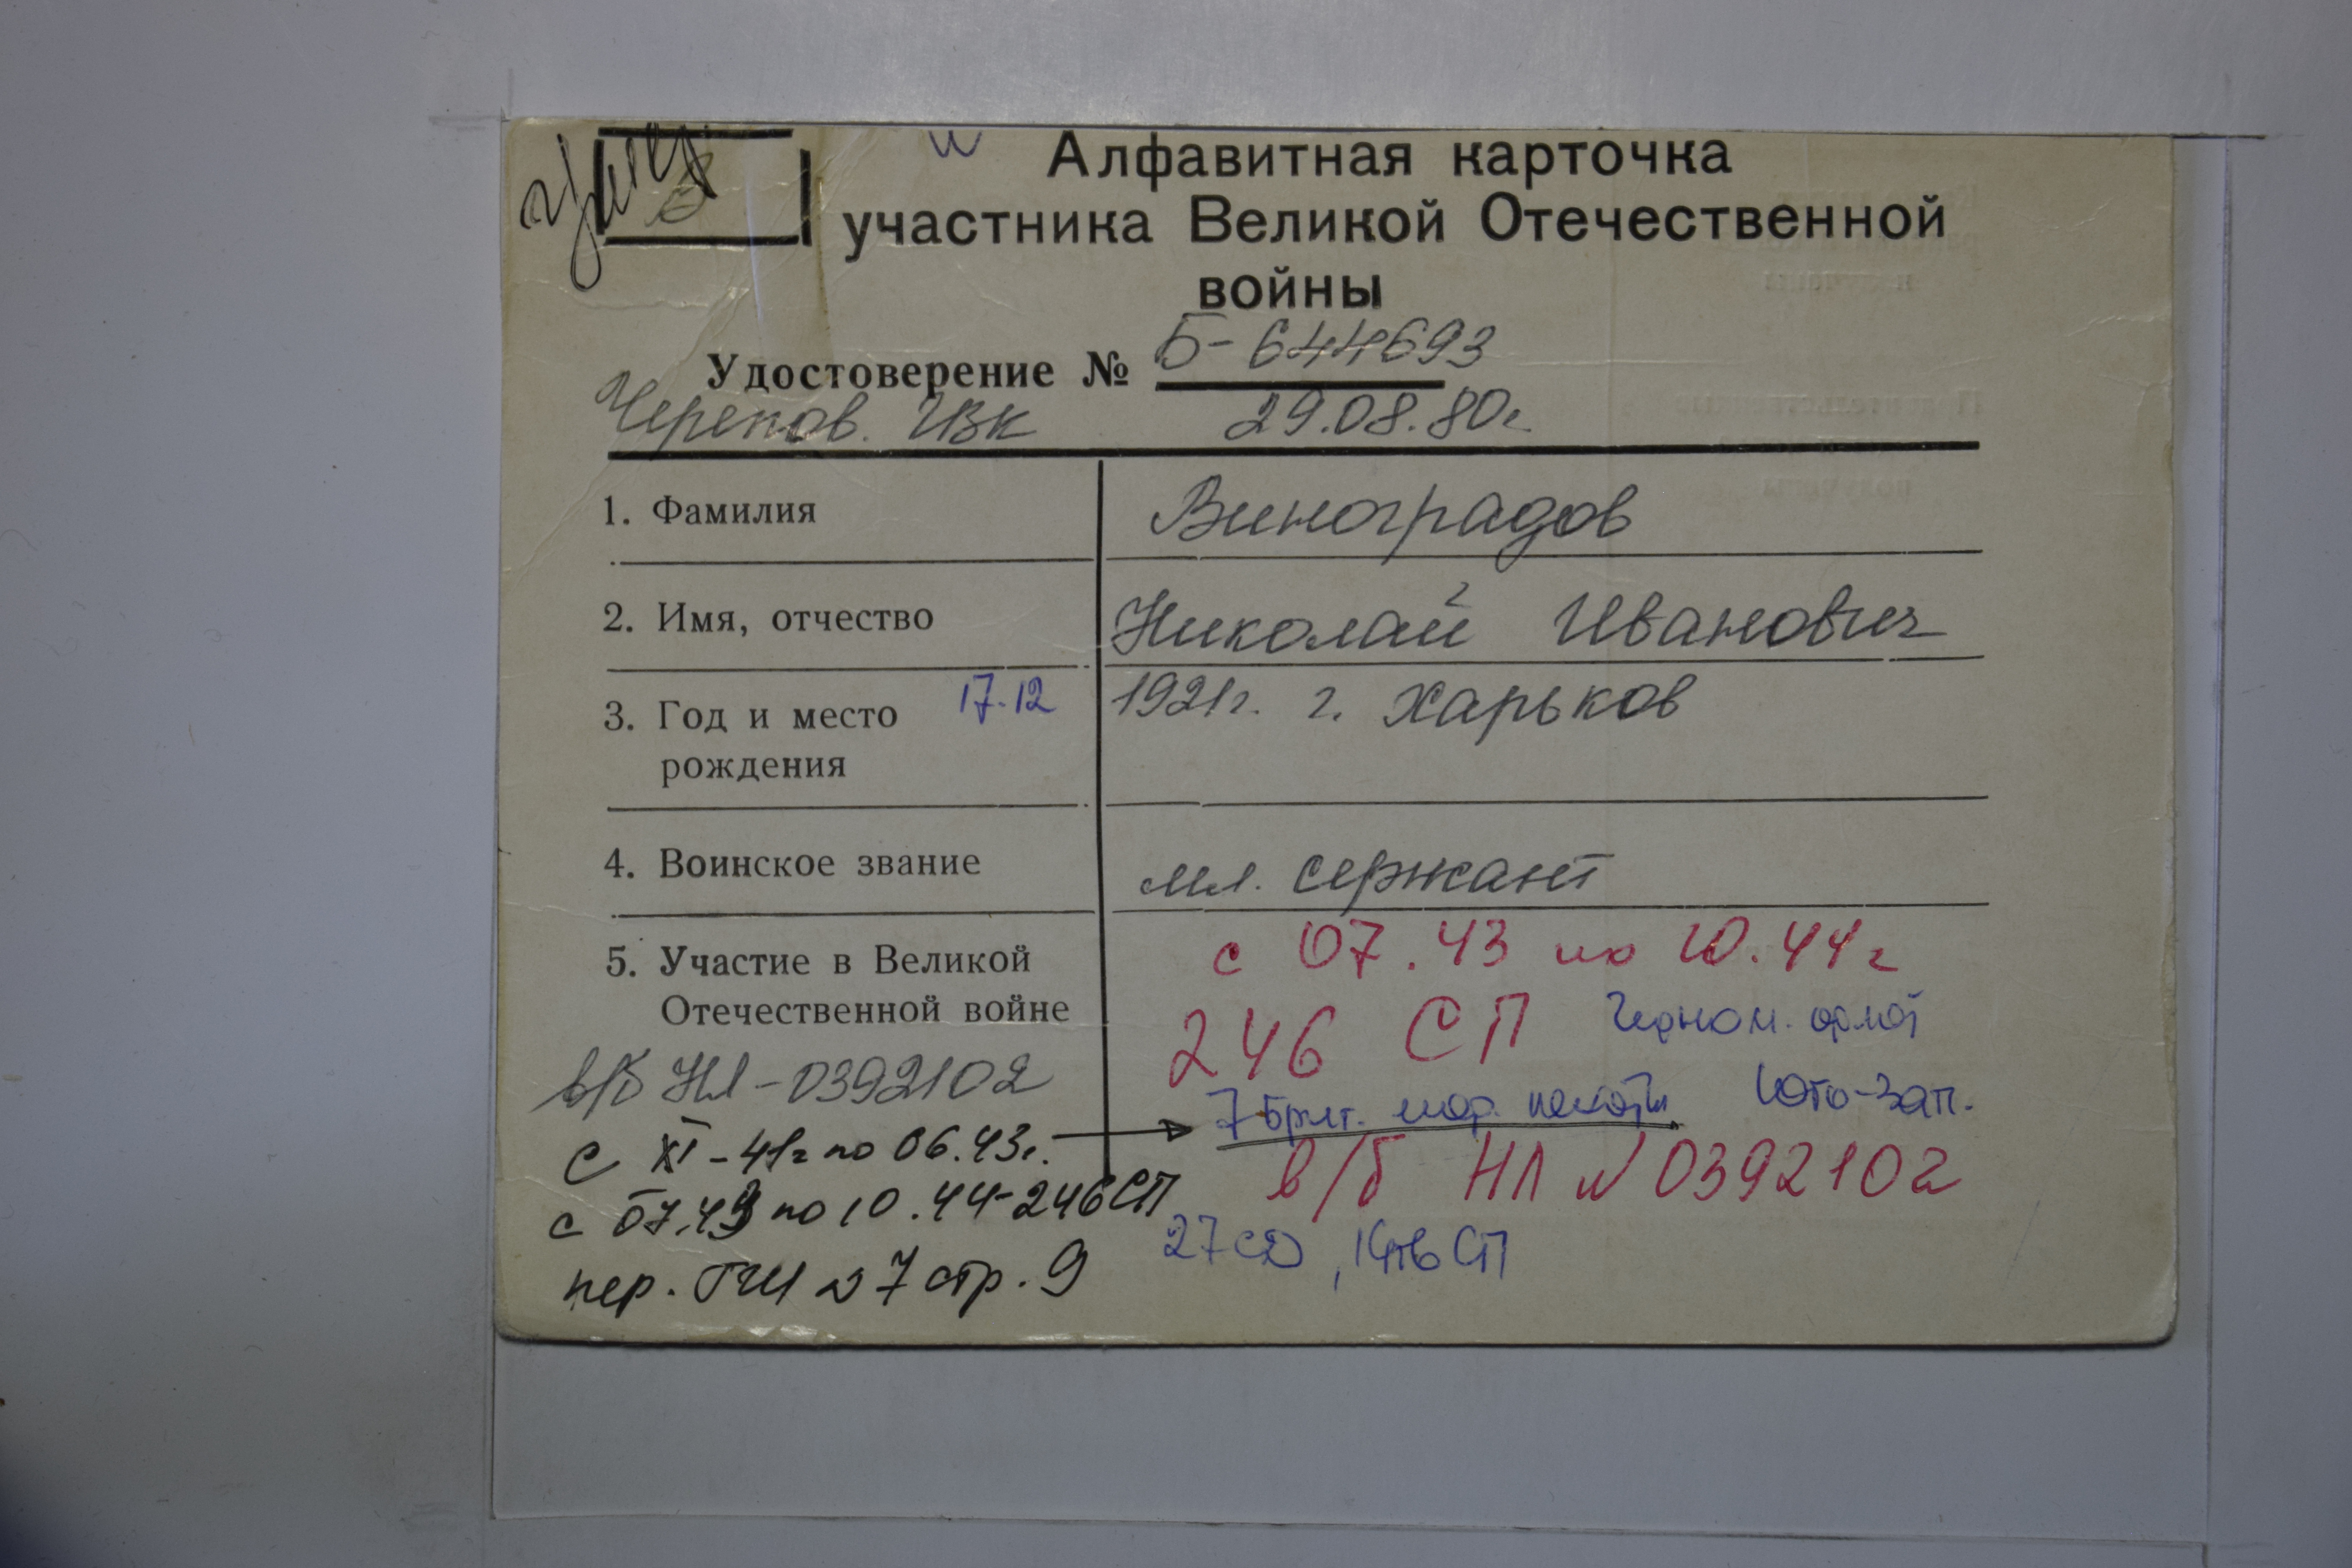 и Алфавитная карточка
участника Великой Отечественной
войны
Удостоверение № Б-644693
Черепов. ГВК 29.08.80г.
1. Фамилия Виноградов
2. Имя, отчество Николай Иванович
3. Год и место рождения 17.12 1921г. г. Харьков
4. Воинское звание мл. сержант
5. Участие в Великой Отечественной войне
с 07.43 по 10.44г
246 СП Черном. флот
в/б НЛ-0392102
7 бриг. мор. пехоты Юго-Зап.
с XI-41г по 06.43г.
в/б НЛ № 0392102
с 07.43 по 10.44-246 СП
27 СД, СП
пер. ГШ № 7 стр. 9